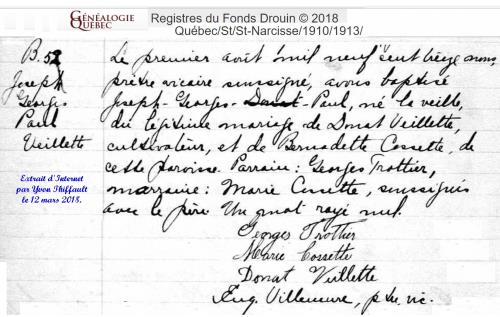 GÉNÉALOGIE
QUÉBEC
Registres du Fonds Drouin © 2018
Québec/St/St-Narcisse/1910/1913/
B. 52
Joseph
Georges
Paul
Veillette
Extrait d'Internet
par Yvon Thiffault
le 12 mars 2018.
Le premier août mil neuf cent treize nous
prêtre vicaire soussigné, avons baptisé
Joseph-Georges-Donat-Paul, né la veille,
du légitime mariage de Donat Veillette,
cultivateur, et de Bernadette Cossette, de
cette paroisse. Parrain: Georges Trottier,
marraine: Marie Cossette, soussignés
avec le père Un mot rayé nul.
Georges Trottier
Marie Cossette
Donat Veillette
Eug. Villeneuve, ptre vic.